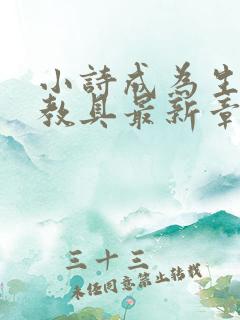 小詩成為生
教具最新章
三十三
未經同意禁止轉載